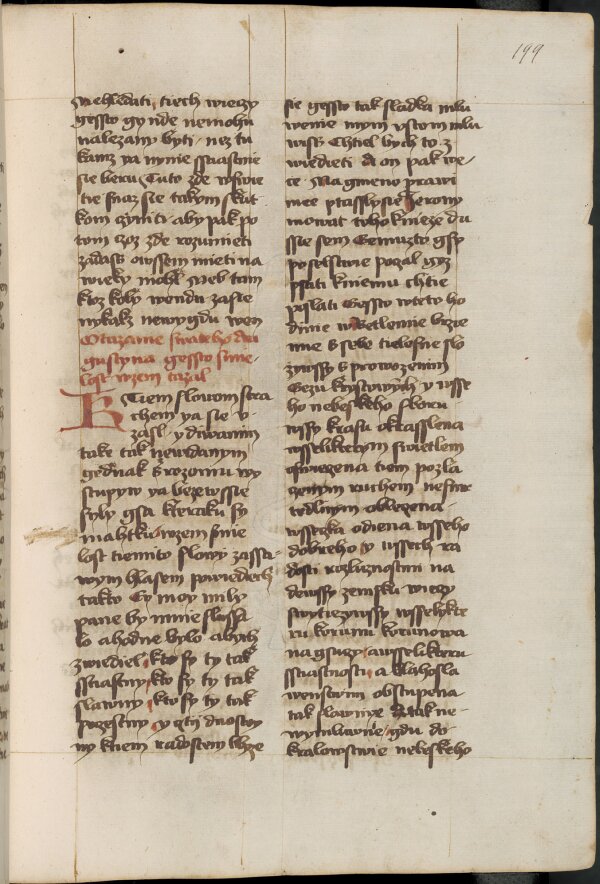 199
wiehledati tiech wieczy
gessto gynde nemohu
nalezany byti nez tu
kamz ya nynie sstiastnie
sie beru Tuto zde w swie
tie snaz sie takym skut
kom czyniti aby pak po
tom czoz zde rozumieti
zadass owssem mieti na
wieky mohl Neb tam
ktoz koly wendu zasie
nykakz newygdu wen
Otazanie swateho Au
gustyna gessto smie
lost wzem tazal
K Tiem slowom stra
chem ya sie v
zasl y diwanim
take tak newidanym
gednak s rozomu wy
stupyw ya beze wssie
syly gsa kteraku sy
mahtku wzem smie
lost tiemito slowy zassa
wym hlasem powiediech
takto Ey moy mily
pane by mnie slussa
lo a hodne bylo abych
zwiediel kto sy ty tak
sstiastny kto sy ty tak
slawny kto sy ty tak
poczestny y z tij duostoy
ny kniem radostem bhze
sie gessto tak sladka mlu
wenie mym vstom mlu
wiss Chtiel bych to z
wiedieti A on pak we
ce Na gmeno prawi
mee ptasslysie Jerony
mowat toho knieze du
ssie sem Gemuzto gsy
poselstwie pozal gez
psati kniemu chtie
poslati Gessto w teto ho
dinie w Betlemie brzie
mie s sebe tielesne slo
zywssy s prowozenim
Gezu krystowych y wsse
ho nebeskeho sboru
wssy krasu okrasslena
wsselikterym swietlem
oswiecena tiem pozla
zenym ruchem nesmr
tedlnym obleczena
wssiczka odiena wsseho
dobreho y wssech ra
dosti rozlicznostmi na
dewssy zemsku wieczy
swytiezywssy wsselykte
ru korunu korunowa
na gsuczy a wsselikteru
sstiastnosti a blahosla
wenstwim obstupena
tak slawnye A tak ne
wymluwnie gdu do
kralowstwie nebeskeho